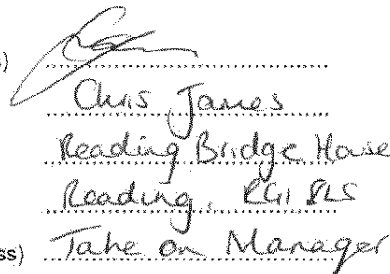 )
Chris James
Reading Bridge House
Reading, RG1 8LS
ss) Take on Manager